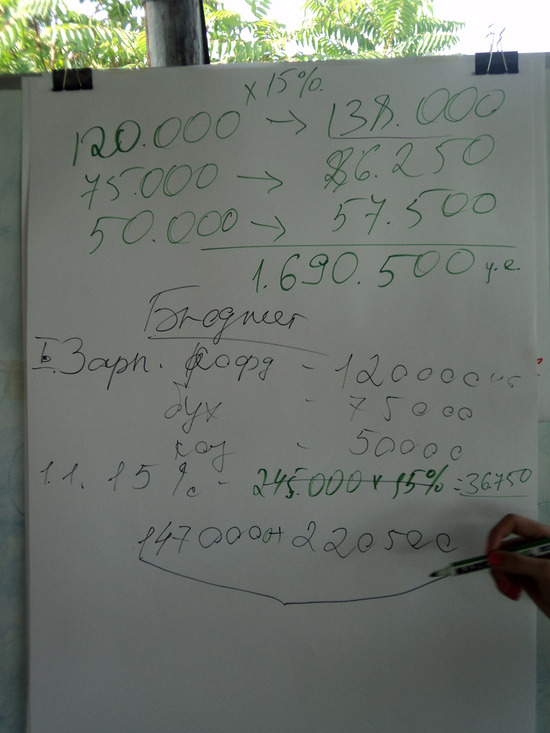 x 15%.
120.000 → 138.000
75.000 → 86.250
50.000 → 57.500
1.690.500 у.е.
Бюджет
I. Зарп. коорд - 120000
бух - 75000
- 50000
1.1. 15% - 245.000 x 15% = 36750
1470000+220500